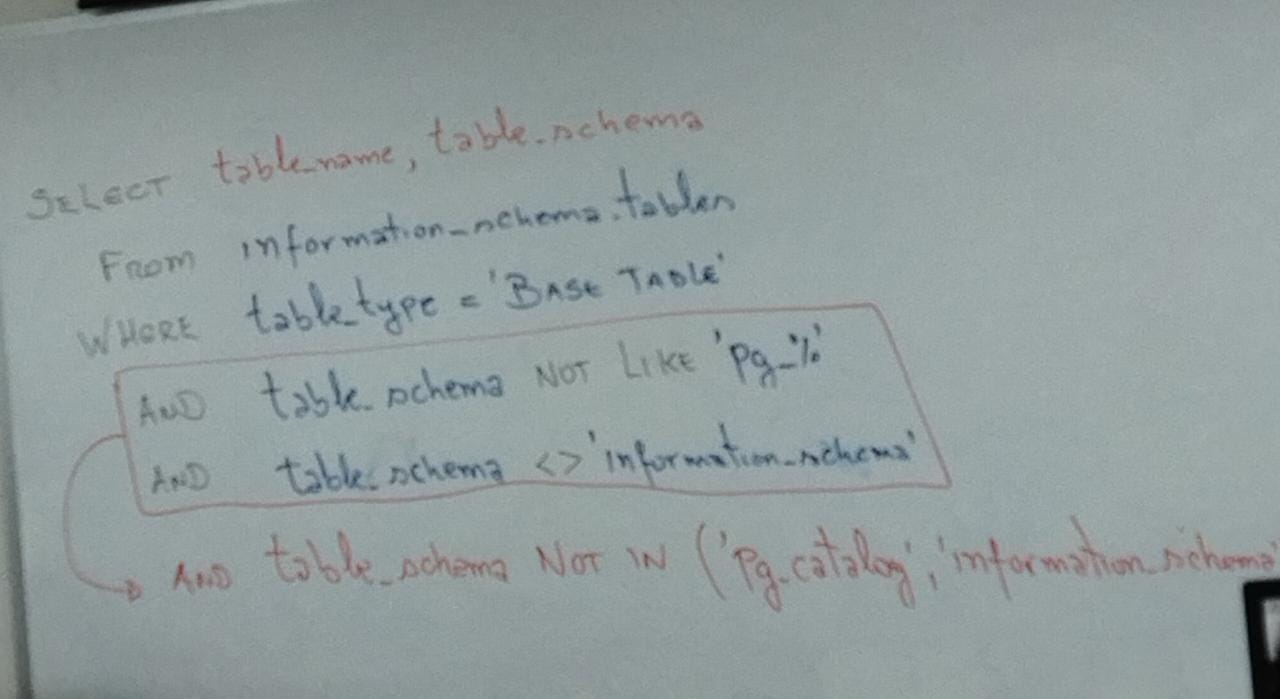 SELECT table_name, table_schema
FROM information_schema.tables
WHERE table_type = 'BASE TABLE'
AND table_schema NOT LIKE 'pg_%'
AND table_schema <> 'information_schema'
AND table_schema NOT IN ('pg_catalog', 'information_schema'